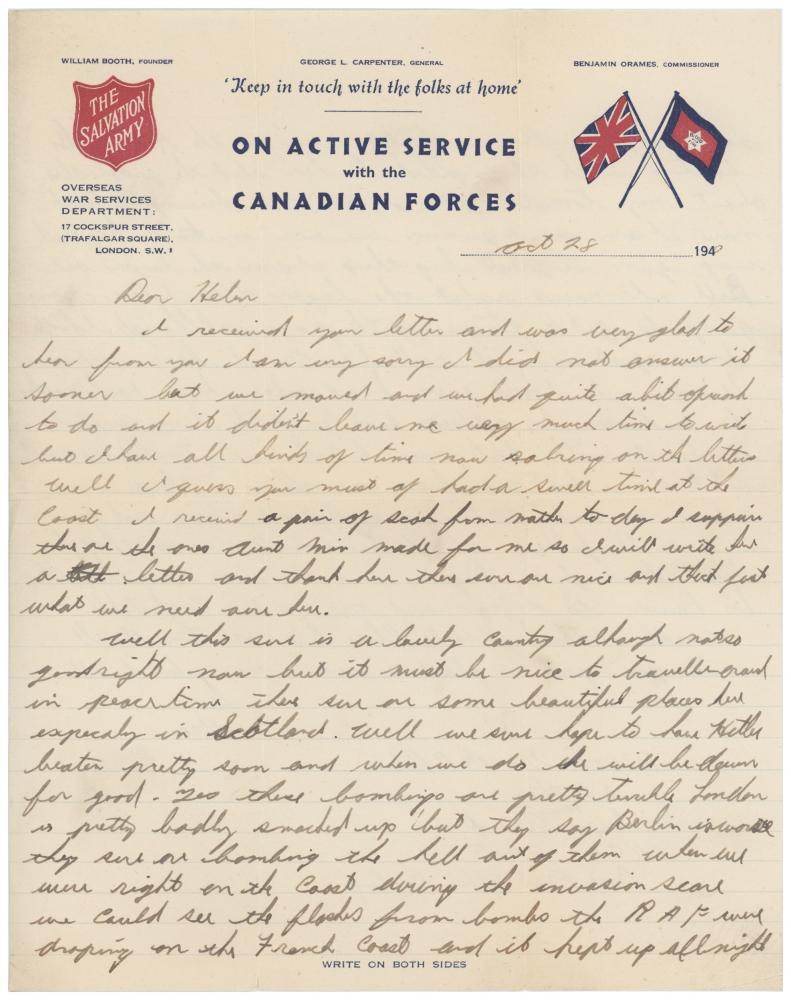 WILLIAM BOOTH, FOUNDER
GEORGE L. CARPENTER, GENERAL
BENJAMIN ORAMES, COMMISSIONER
THE
SALVATION
ARMY
'Keep in touch with the folks at home'
ON ACTIVE SERVICE
with the
CANADIAN FORCES
OVERSEAS
WAR SERVICES
DEPARTMENT:
17 COCKSPUR STREET,
(TRAFALGAR SQUARE),
LONDON. S.W.1
oct 28 1940
Dear Helen
I received your letter and was very glad to
hear from you I am very sorry I did not answer it
sooner but we moved and we had quite a bit of work
to do and it didn't leave me very much time to write
but I have all kinds of time now so bring on the letters
well I guess you must of had a swell time at the
Coast I received a pair of from mother to day I suppose
these are the ones Aunt Min made for me so I will write her
a letter and thank her they sure are nice and just
what we need over here.
Well this sure is a lovely Country although not so
good right now but it must be nice to travell around
in peace time there sure are some beautiful places here
especaly in Scotland. Well we sure hope to have Hitler
beaten pretty soon and when we do he will be down
for good. Yes these bombings are pretty terrible London
is pretty badly smacked up but they say Berlin is worse
they sure are bombing the hell out of them when we
were right on the Coast during the invasion scare
we Could see the flashes from bombs the R A F were
droping on the French Coast and it kept up all night
WRITE ON BOTH SIDES